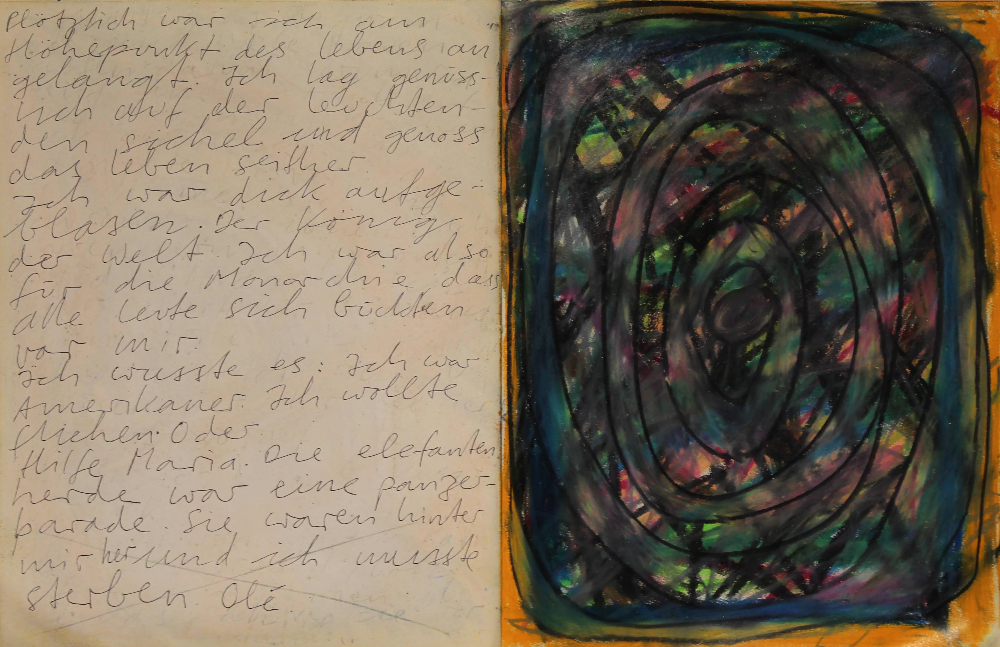 Plötzlich war ich am
Höhepunkt des lebens an
gelangt. Ich lag genüss-
lich auf der leuchten-
den sichel und genoss
das leben seither.
Ich war dick aufge-
blasen. Der König
der Welt. Ich war also
für die Monarchie dass
alle leute sich bückten
vor mir.
Ich wusste es: Ich war
Amerikaner. Ich wollte
fliehen. Oder
Hilfe Maria. Die elefanten
herde war eine panzer-
parade. Sie waren hinter
mir her und ich musste
sterben. Olé.